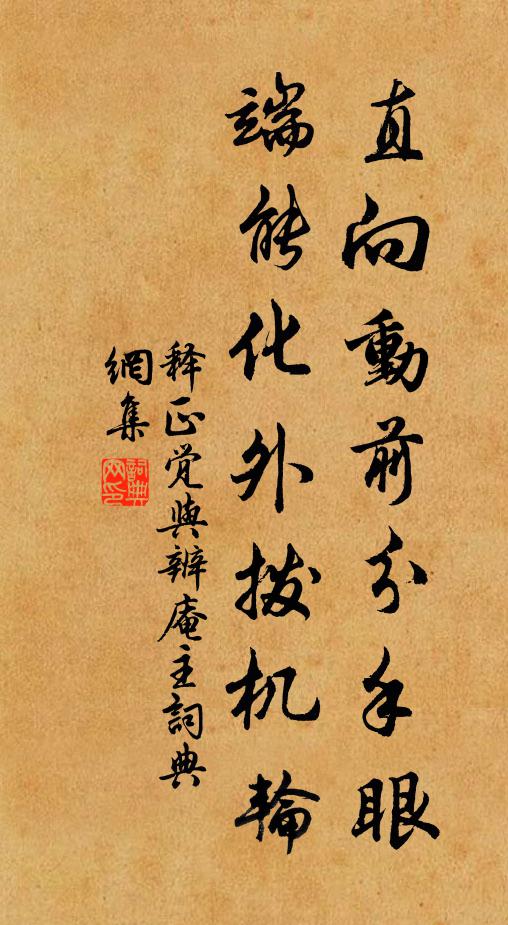 直向動前分手眼
端能化外拨机輪
释正觉與辨庵主詞典
網集
詞典
网印